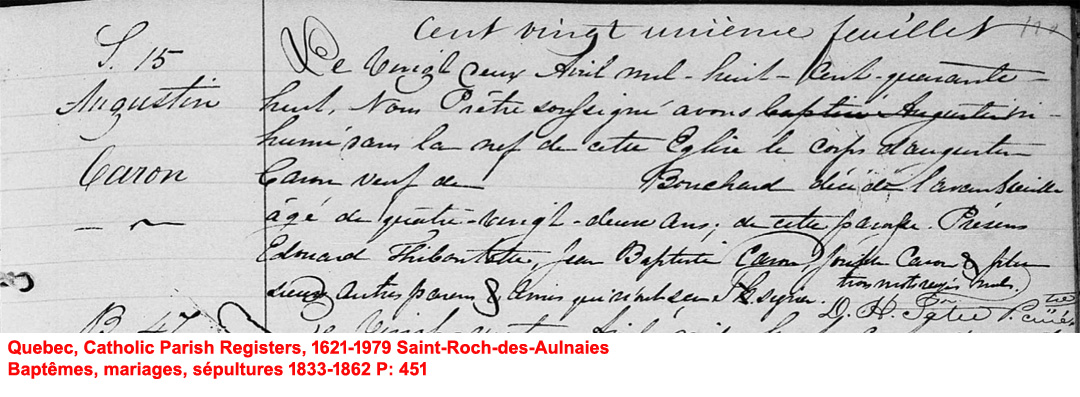 Cent vingt unième feuillet
S. 15
Augustin
Caron
Le Vingt deux Avril mil-huit-Cent-quarante-
huit, Nous Prêtre soussigné avons baptisé Augustin in-
humé dans la nef de cette Eglise le corps d'augustin
Caron veuf de Bouchard décédé l'avant veille
âgé de quatre-vingt-deux ans; de cette paroisse. Présens
Edouard Thiboutôt, Jean Baptiste Caron, Joseph Caron & plu
sieurs autres parens & amis qui n'ont su signer. trois mots rayés nuls.
D. H. Ptre Curé
B. 47
Le Vingt
Quebec, Catholic Parish Registers, 1621-1979 Saint-Roch-des-Aulnaies
Baptêmes, mariages, sépultures 1833-1862 P: 451